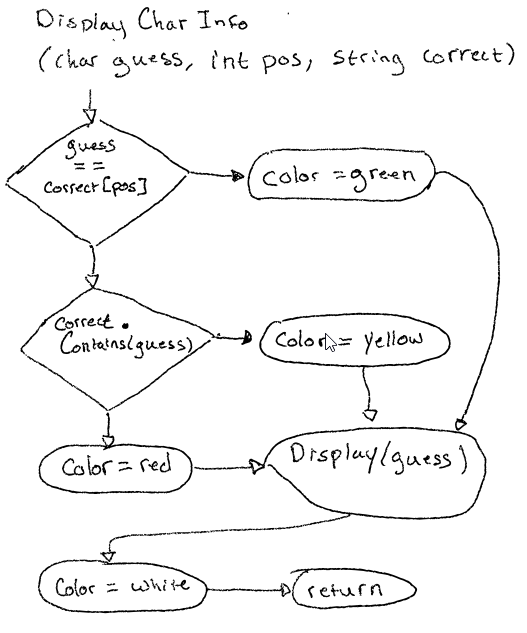 Display Char Info
(char guess, int pos, string correct)
guess
==
correct[pos]
color = green
correct.
Contains(guess)
Color = yellow
Color = red
Display(guess)
Color = white
return